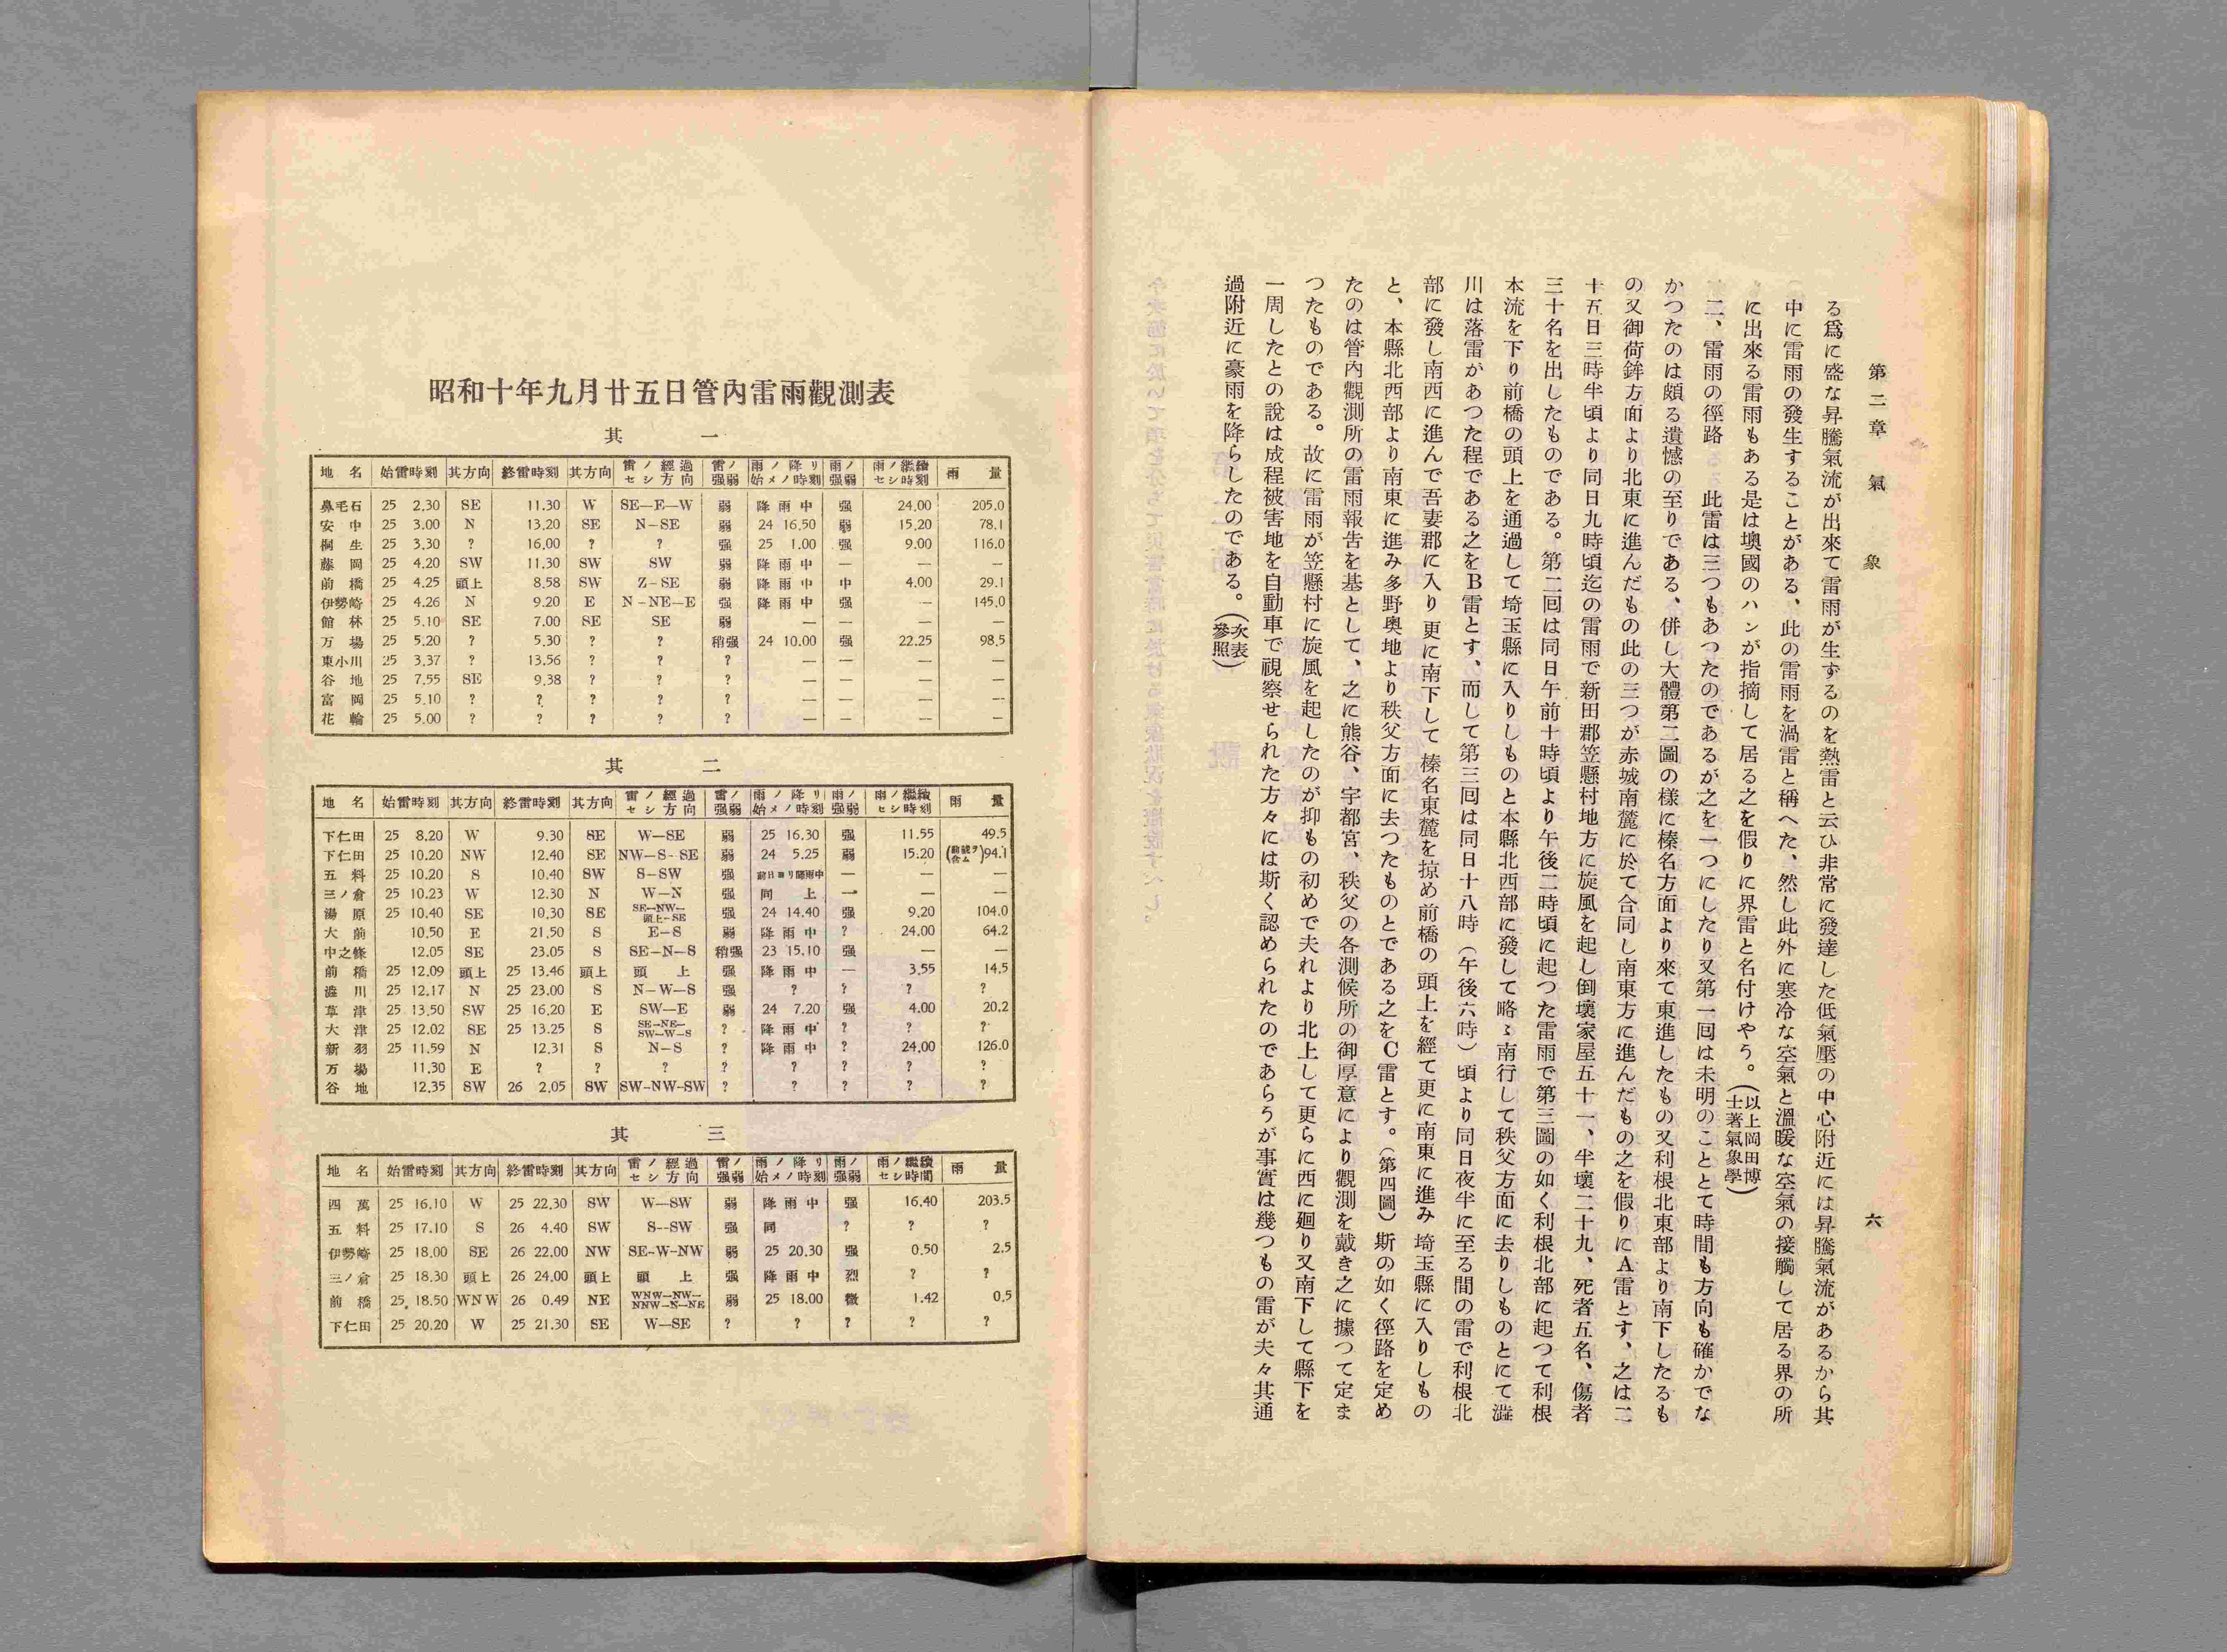 第二章　氣　象　六
る爲に盛な昇騰氣流が出來て雷雨が生ずるのを熱雷と云ひ非常に發達した低氣壓の中心附近には昇騰氣流があるから其
中に雷雨の發生することがある、此の雷雨を渦雷と稱へた、然し此外に寒冷な空氣と溫暖な空氣の接觸して居る界の所
に出來る雷雨もある是は墺國のハンが指摘して居る之を假りに界雷と名付けやう。（以上岡田博士著氣象學）
二、雷雨の徑路　此雷は三つもあつたのであるが之を一つにしたり又第一回は未明のこととて時間も方向も確かでな
かつたのは頗る遺憾の至りである、併し大體第二圖の樣に榛名方面より來て東進したもの又利根北東部より南下したるも
の又御荷鉾方面より北東に進んだもの此の三つが赤城南麓に於て合同し南東方に進んだもの之を假りにA雷とす、之は二
十五日三時半頃より同日九時頃迄の雷雨で新田郡笠懸村地方に旋風を起し倒壞家屋五十一、半壞二十九、死者五名、傷者
三十名を出したものである。第二回は同日午前十時頃より午後二時頃に起つた雷雨で第三圖の如く利根北部に起つて利根
本流を下り前橋の頭上を通過して埼玉縣に入りしものと本縣北西部に發して略〻南行して秩父方面に去りしものとにて澁
川は落雷があつた程である之をB雷とす、而して第三回は同日十八時（午後六時）頃より同日夜半に至る間の雷で利根北
部に發し南西に進んで吾妻郡に入り更に南下して榛名東麓を掠め前橋の頭上を經て更に南東に進み埼玉縣に入りしもの
と、本縣北西部より南東に進み多野奧地より秩父方面に去つたものとである之をC雷とす。（第四圖）斯の如く徑路を定め
たのは管內觀測所の雷雨報告を基として、之に熊谷、宇都宮、秩父の各測候所の御厚意により觀測を戴き之に據つて定ま
つたものである。故に雷雨が笠懸村に旋風を起したのが抑もの初めで夫れより北上して更らに西に廻り又南下して縣下を
一周したとの說は成程被害地を自動車で視察せられた方々には斯く認められたのであらうが事實は幾つもの雷が夫々其通
過附近に豪雨を降らしたのである。（次表參照）
昭和十年九月廿五日管內雷雨觀測表
其　一
地名　始雷時刻　其方向　終雷時刻　其方向　雷ノ經過セシ方向　雷ノ强弱　雨ノ降リ始メノ時刻　雨ノ强弱　雨ノ繼續セシ時刻　雨量
鼻毛石　25 2.30　SE　11.30　W　SE—E—W　弱　降雨中　强　24.00　205.0
安中　25 3.00　N　13.20　SE　N-SE　弱　24 16.50　弱　15.20　78.1
桐生　25 3.30　?　16.00　?　?　强　25 1.00　强　9.00　116.0
藤岡　25 4.20　SW　11.30　SW　SW　弱　降雨中　—　—　—
前橋　25 4.25　頭上　8.58　SW　Z-SE　弱　降雨中　中　4.00　29.1
伊勢崎　25 4.26　N　9.20　E　N-NE—E　强　降雨中　强　—　145.0
館林　25 5.10　SE　7.00　SE　SE　弱　—　—　—　—
万場　25 5.20　?　5.30　?　?　稍强　24 10.00　强　22.25　98.5
東小川　25 3.37　?　13.56　?　?　?　—　—　—　—
谷地　25 7.55　SE　9.38　?　?　?　—　—　—　—
富岡　25 5.10　?　?　?　?　?　—　—　—　—
花輪　25 5.00　?　?　?　?　?　—　—　—　—
其　二
地名　始雷時刻　其方向　終雷時刻　其方向　雷ノ經過セシ方向　雷ノ强弱　雨ノ降リ始メノ時刻　雨ノ强弱　雨ノ繼續セシ時刻　雨量
下仁田　25 8.20　W　9.30　SE　W—SE　弱　25 16.30　强　11.55　49.5
下仁田　25 10.20　NW　12.40　SE　NW—S-SE　弱　24 5.25　弱　15.20　94.1
五料　25 10.20　S　10.40　SW　S-SW　强　前日ヨリ降雨中　—　—　—
三ノ倉　25 10.23　W　12.30　N　W—N　强　同上　—　—　—
湯原　25 10.40　SE　10.30　SE　SE—NW—頭上-SE　强　24 14.40　强　9.20　104.0
大前　10.50　E　21.50　S　E-S　弱　降雨中　?　24.00　64.2
中之條　12.05　SE　23.05　S　SE-N-S　稍强　23 15.10　强　—　—
前橋　25 12.09　頭上　25 13.46　頭上　頭上　强　降雨中　—　3.55　14.5
澁川　25 12.17　N　25 23.00　S　N-W-S　强　?　?　?　?
草津　25 13.50　SW　25 16.20　E　SW—E　弱　24 7.20　强　4.00　20.2
大津　25 12.02　SE　25 13.25　S　SE-NE-SW-W-S　?　降雨中　?　?　?
新羽　25 11.59　N　12.31　S　N-S　?　降雨中　?　24.00　126.0
万場　11.30　E　?　?　?　?　?　?　?　?
谷地　12.35　SW　26 2.05　SW　SW-NW-SW　?　?　?　?　?
其　三
地名　始雷時刻　其方向　終雷時刻　其方向　雷ノ經過セシ方向　雷ノ强弱　雨ノ降リ始メノ時刻　雨ノ强弱　雨ノ繼續セシ時間　雨量
四萬　25 16.10　W　25 22.30　SW　W—SW　弱　降雨中　强　16.40　203.5
五料　25 17.10　S　26 4.40　SW　S--SW　强　同　?　?　?
伊勢崎　25 18.00　SE　26 22.00　NW　SE-W-NW　弱　25 20.30　强　0.50　2.5
三ノ倉　25 18.30　頭上　26 24.00　頭上　頭上　强　降雨中　烈　?　?
前橋　25 18.50　WNW　26 0.49　NE　WNW—NW—NNW-N-NE　弱　25 18.00　微　1.42　0.5
下仁田　25 20.20　W　25 21.30　SE　W—SE　?　?　?　?　?